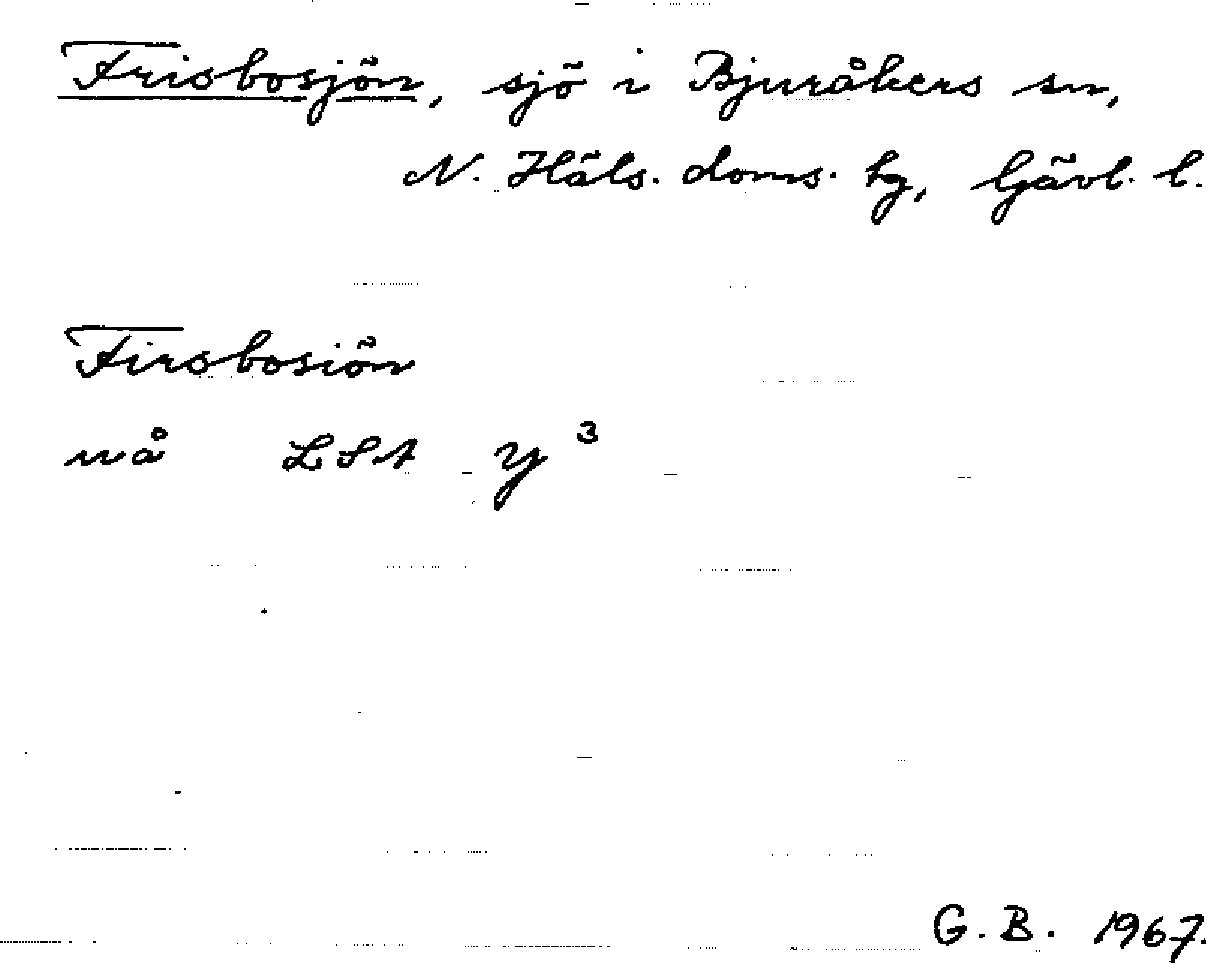 Frisbosjön, sjö i Bjuråkers sn,
N. Häls. doms. tg, Gävl. l.
Firsbosiön
nå LSA Y 3
G. B. 1967.